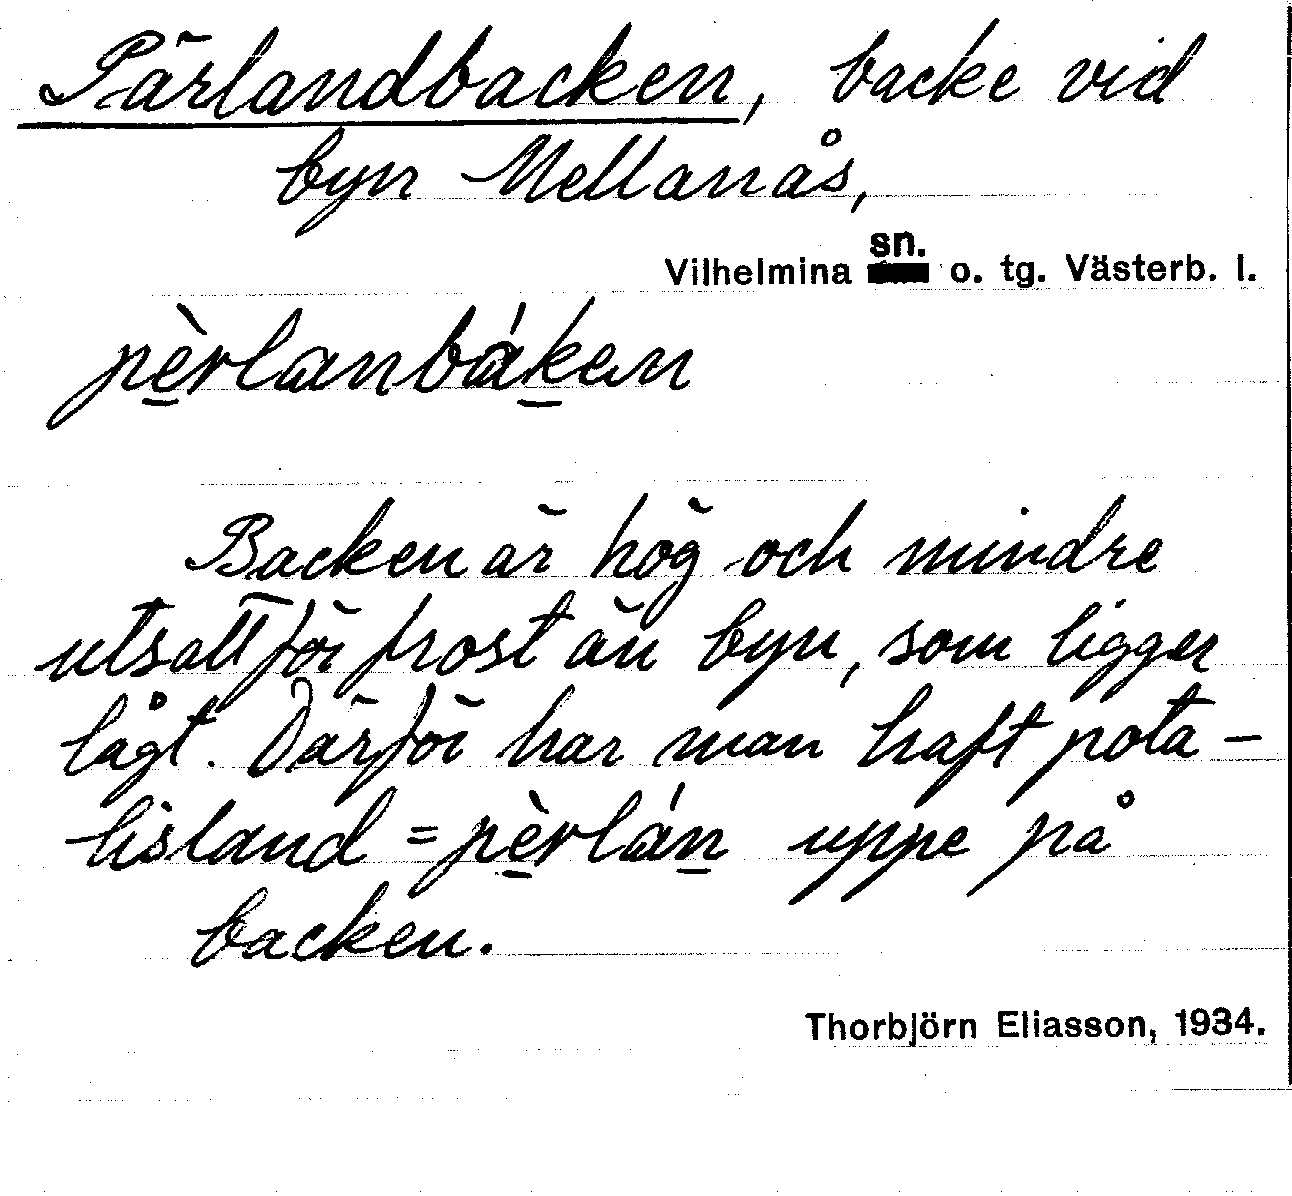 Pärlandbacken, backe vid
byn Mellanås,
Vilhelmina sn. o. tg. Västerb. l.
pè̠rlanbák̠en
Backen är hög och mindre
utsatt för frost än byn, som ligger
lågt. Därför har man haft pota-
tisland = pè̠rlán̠ uppe på
backen.
Thorbjörn Eliasson, 1934.